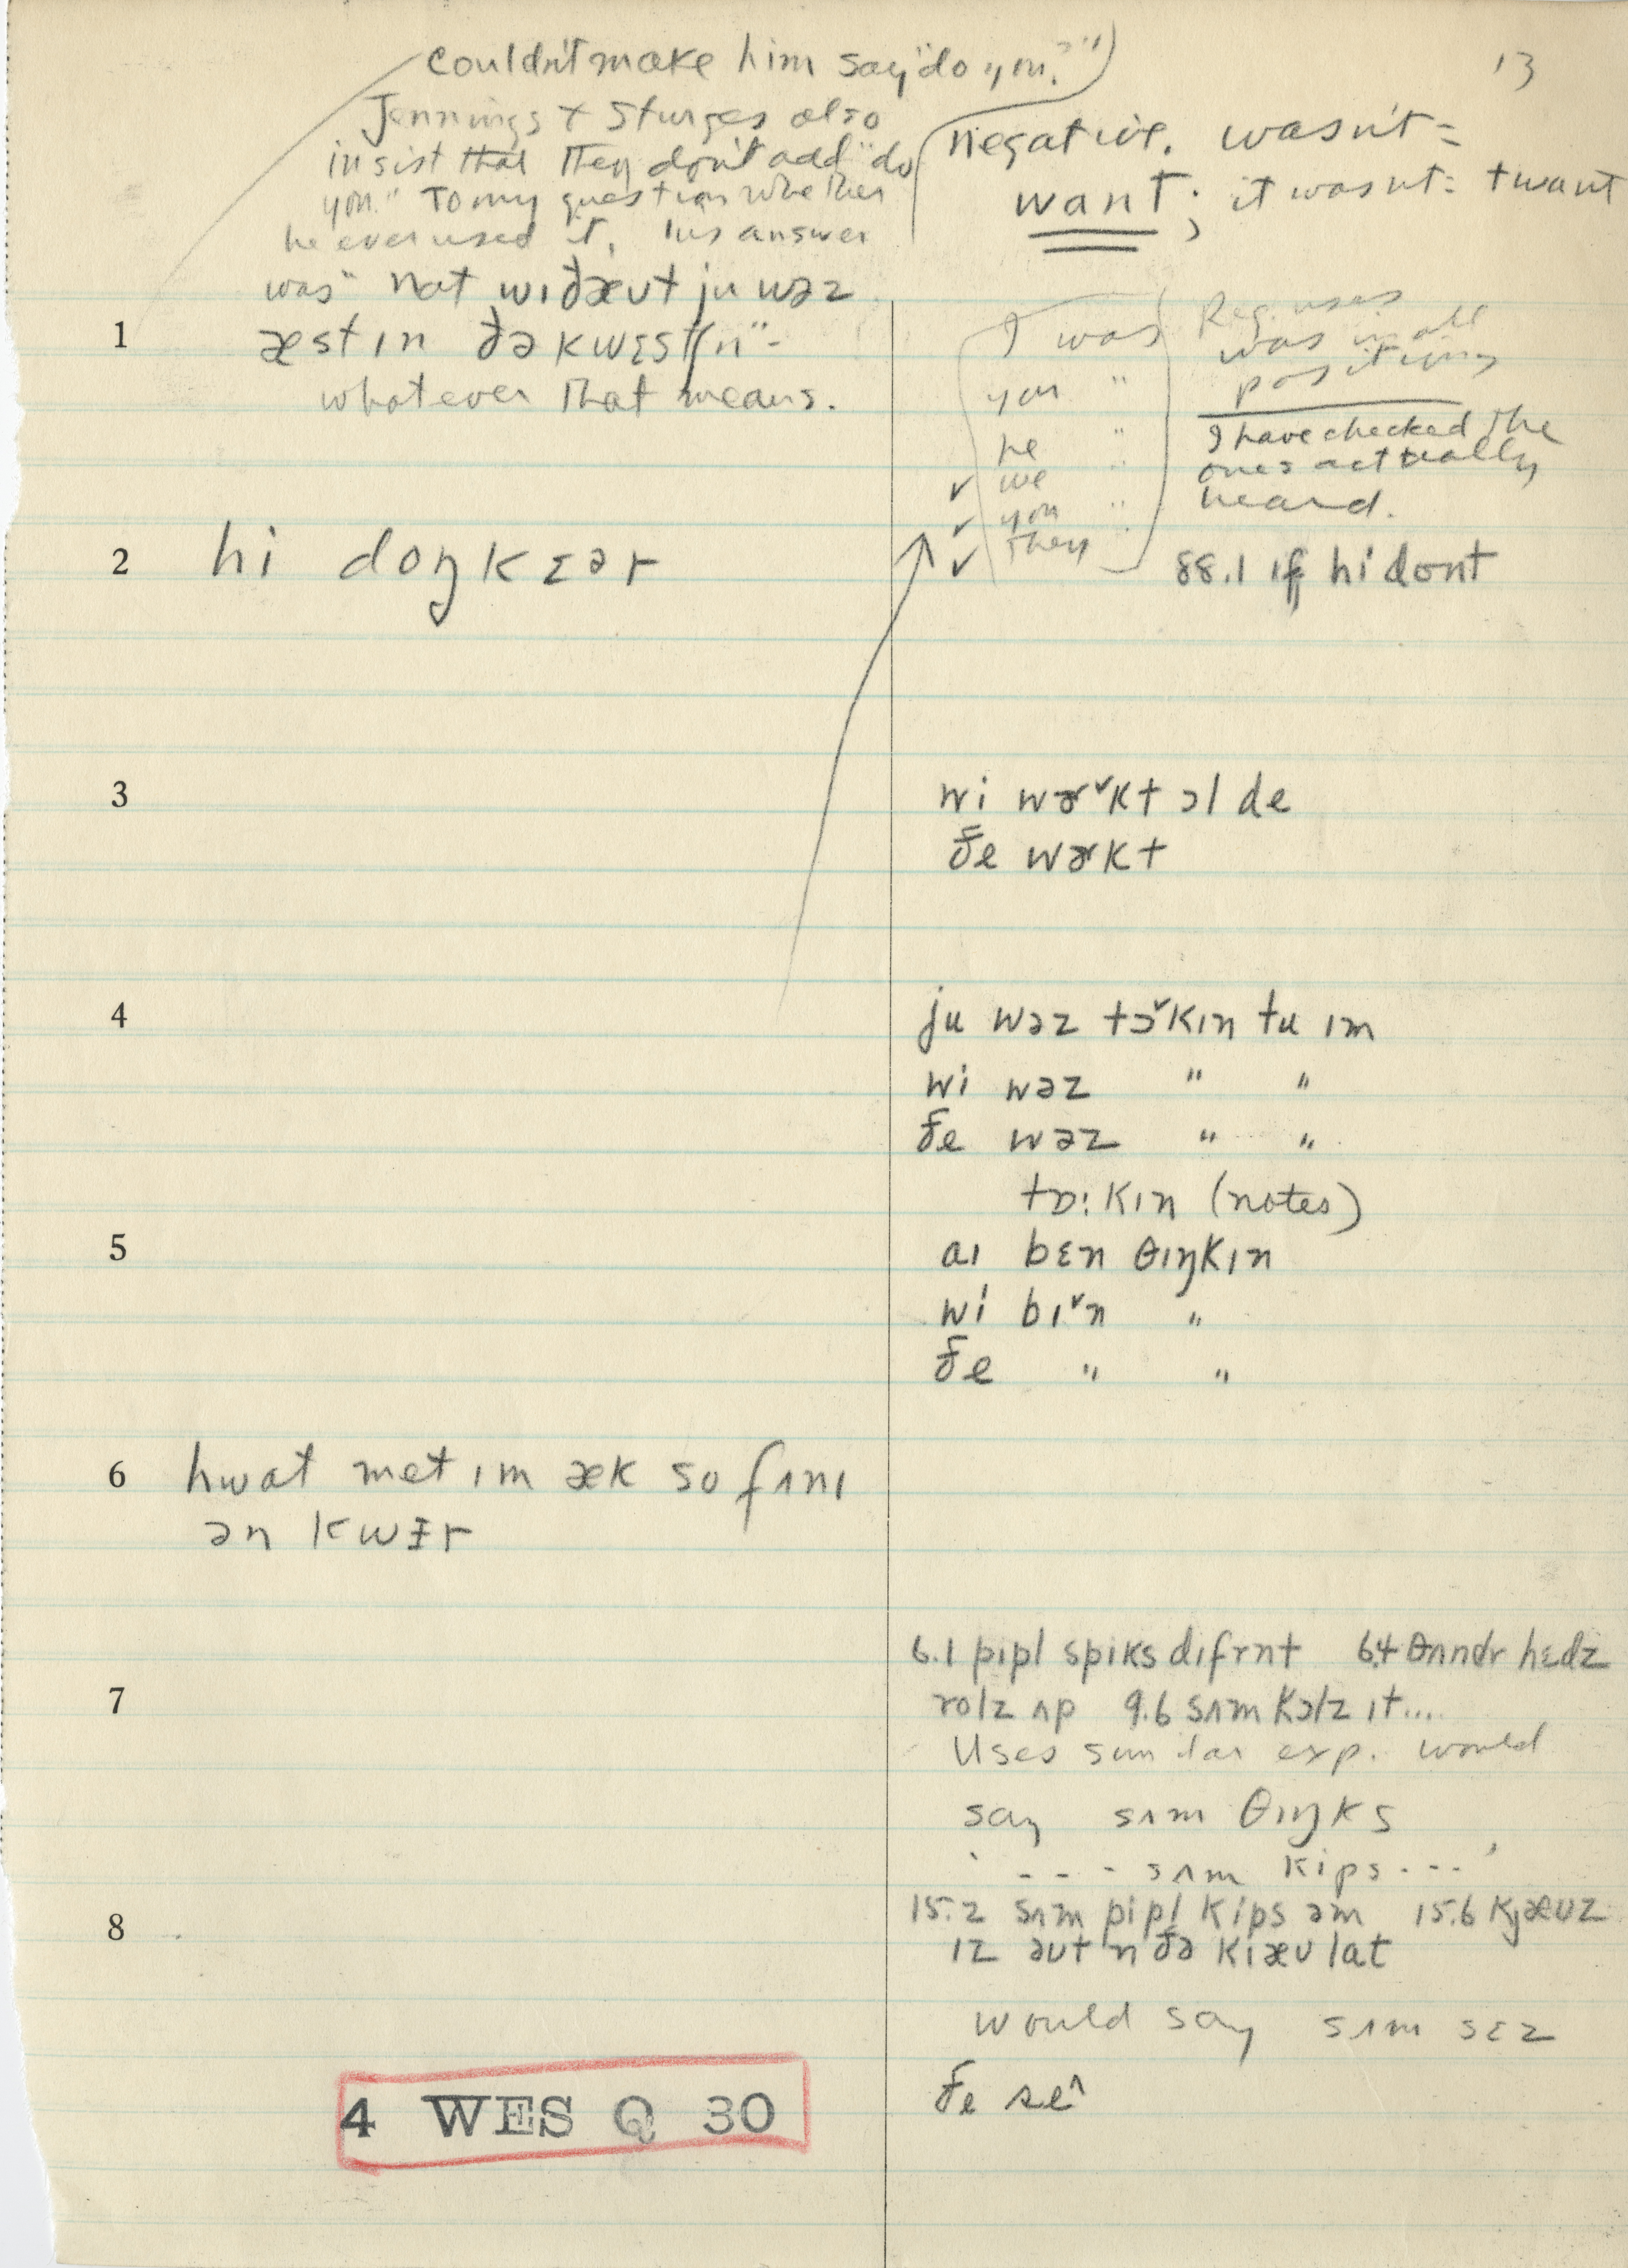 13
couldn't make him say "do you?")
Jennings + Sturges also
insist that they don't add "do
you." To my question whether
he ever used it, his answer
was "nat wɪðæʊt ju wəz
æst ɪn ðə kwɛstʃn" -
whatever that means.
negative. wasn't =
want; it wasn't = twant
1
I was
you "
he "
✓ we "
✓ you "
✓ they
Reg. uses
was in all
positions
I have checked the
ones actually
heard.
2 hi doŋkɛər
88.1 ɪf hi dont
3
wi wɚ˅kt ɔl de
ðe wɚkt
4
ju wəz tɔ˅kɪn tu ɪm
wi wəz " "
ðe wəz " "
tɒ:kɪn (notes)
5
aɪ bɛn θɪŋkɪn
wi bɪ˅n "
ðe " "
6 hwat met ɪm æk so fʌnɪ
ən kwɪr
6.1 pipl spiks dɪfrnt 6.4 θʌndr hɛdz
7
rolz ʌp 9.6 sʌm kɔlz ɪt....
Uses similar exp. would
say sʌm θɪŋks
' - - - sʌm kips - - - '
15.2 sʌm pipl kips əm 15.6 kjæʊz
8
ɪz əʊt n ðə kiæʊ lat
would say sʌm sɛz
ðe se^
4 WES Q 30